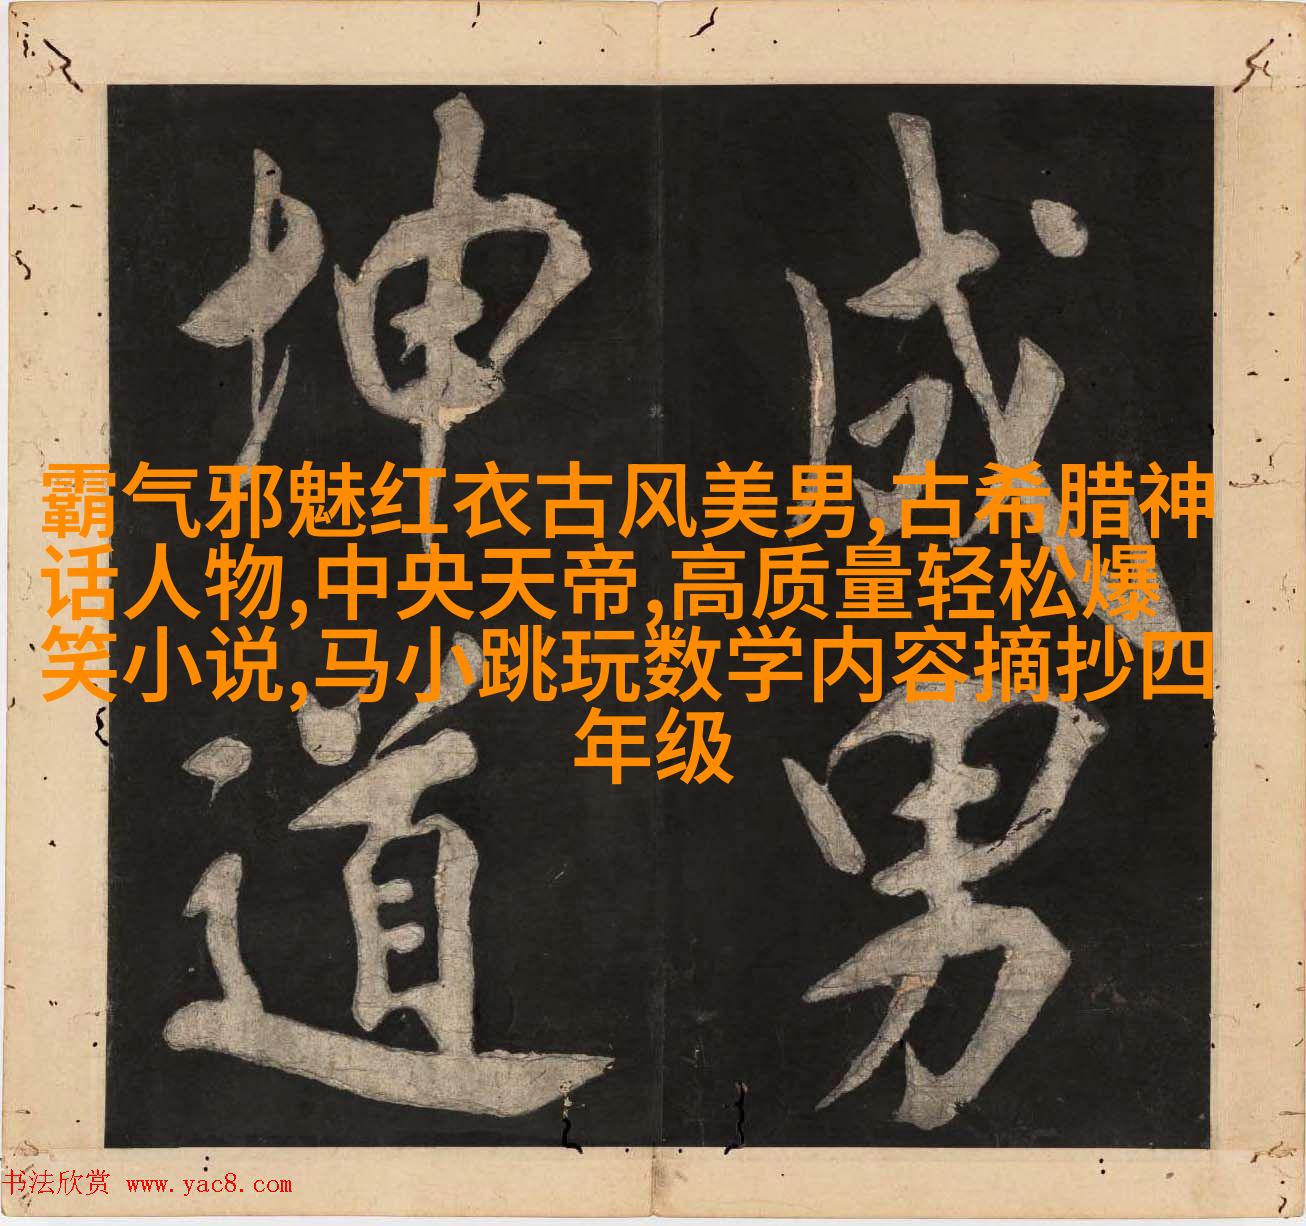 成男
坤道
霸气邪魅红衣古风美男,古希腊神
话人物,中央天帝,高质量轻松爆
笑小说,马小跳玩数学内容摘抄四
年级
书法欣赏 www.yac8.com